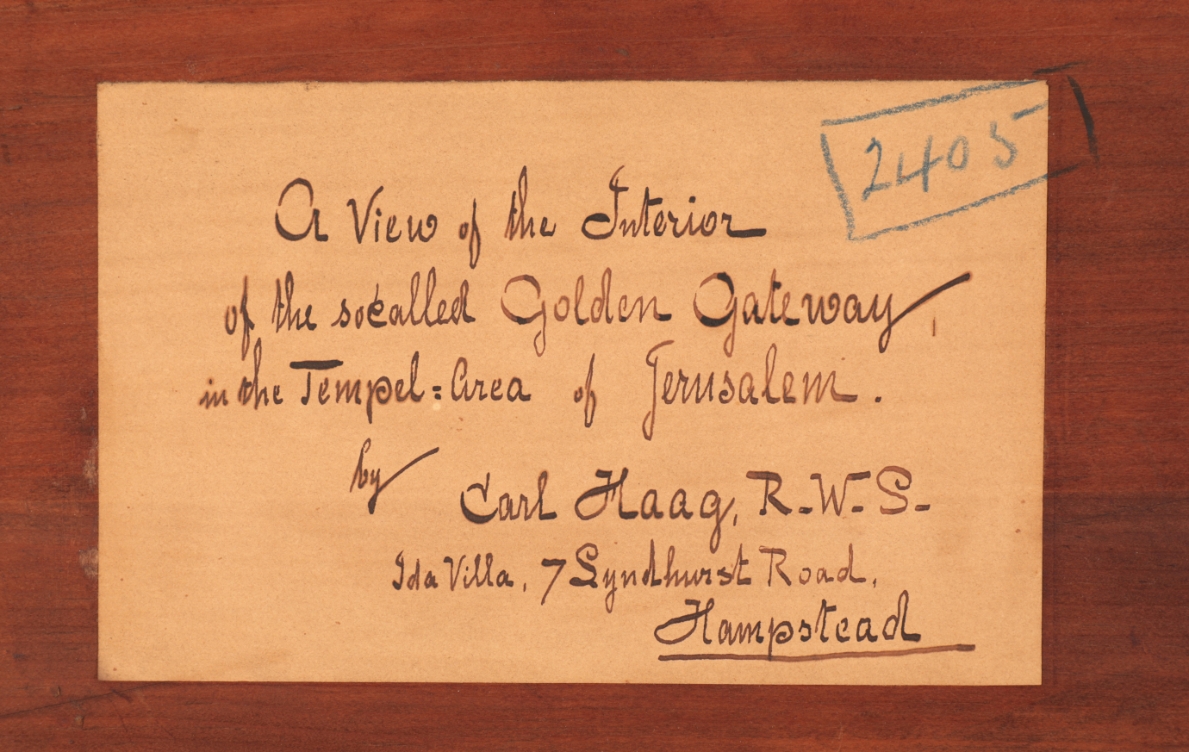 2405
A View of the Interior
of the socalled Golden Gateway,
in the Tempel=Area of Jerusalem.
by
Carl Haag, R.W.S.
Ida Villa, 7 Lyndhurst Road,
Hampstead